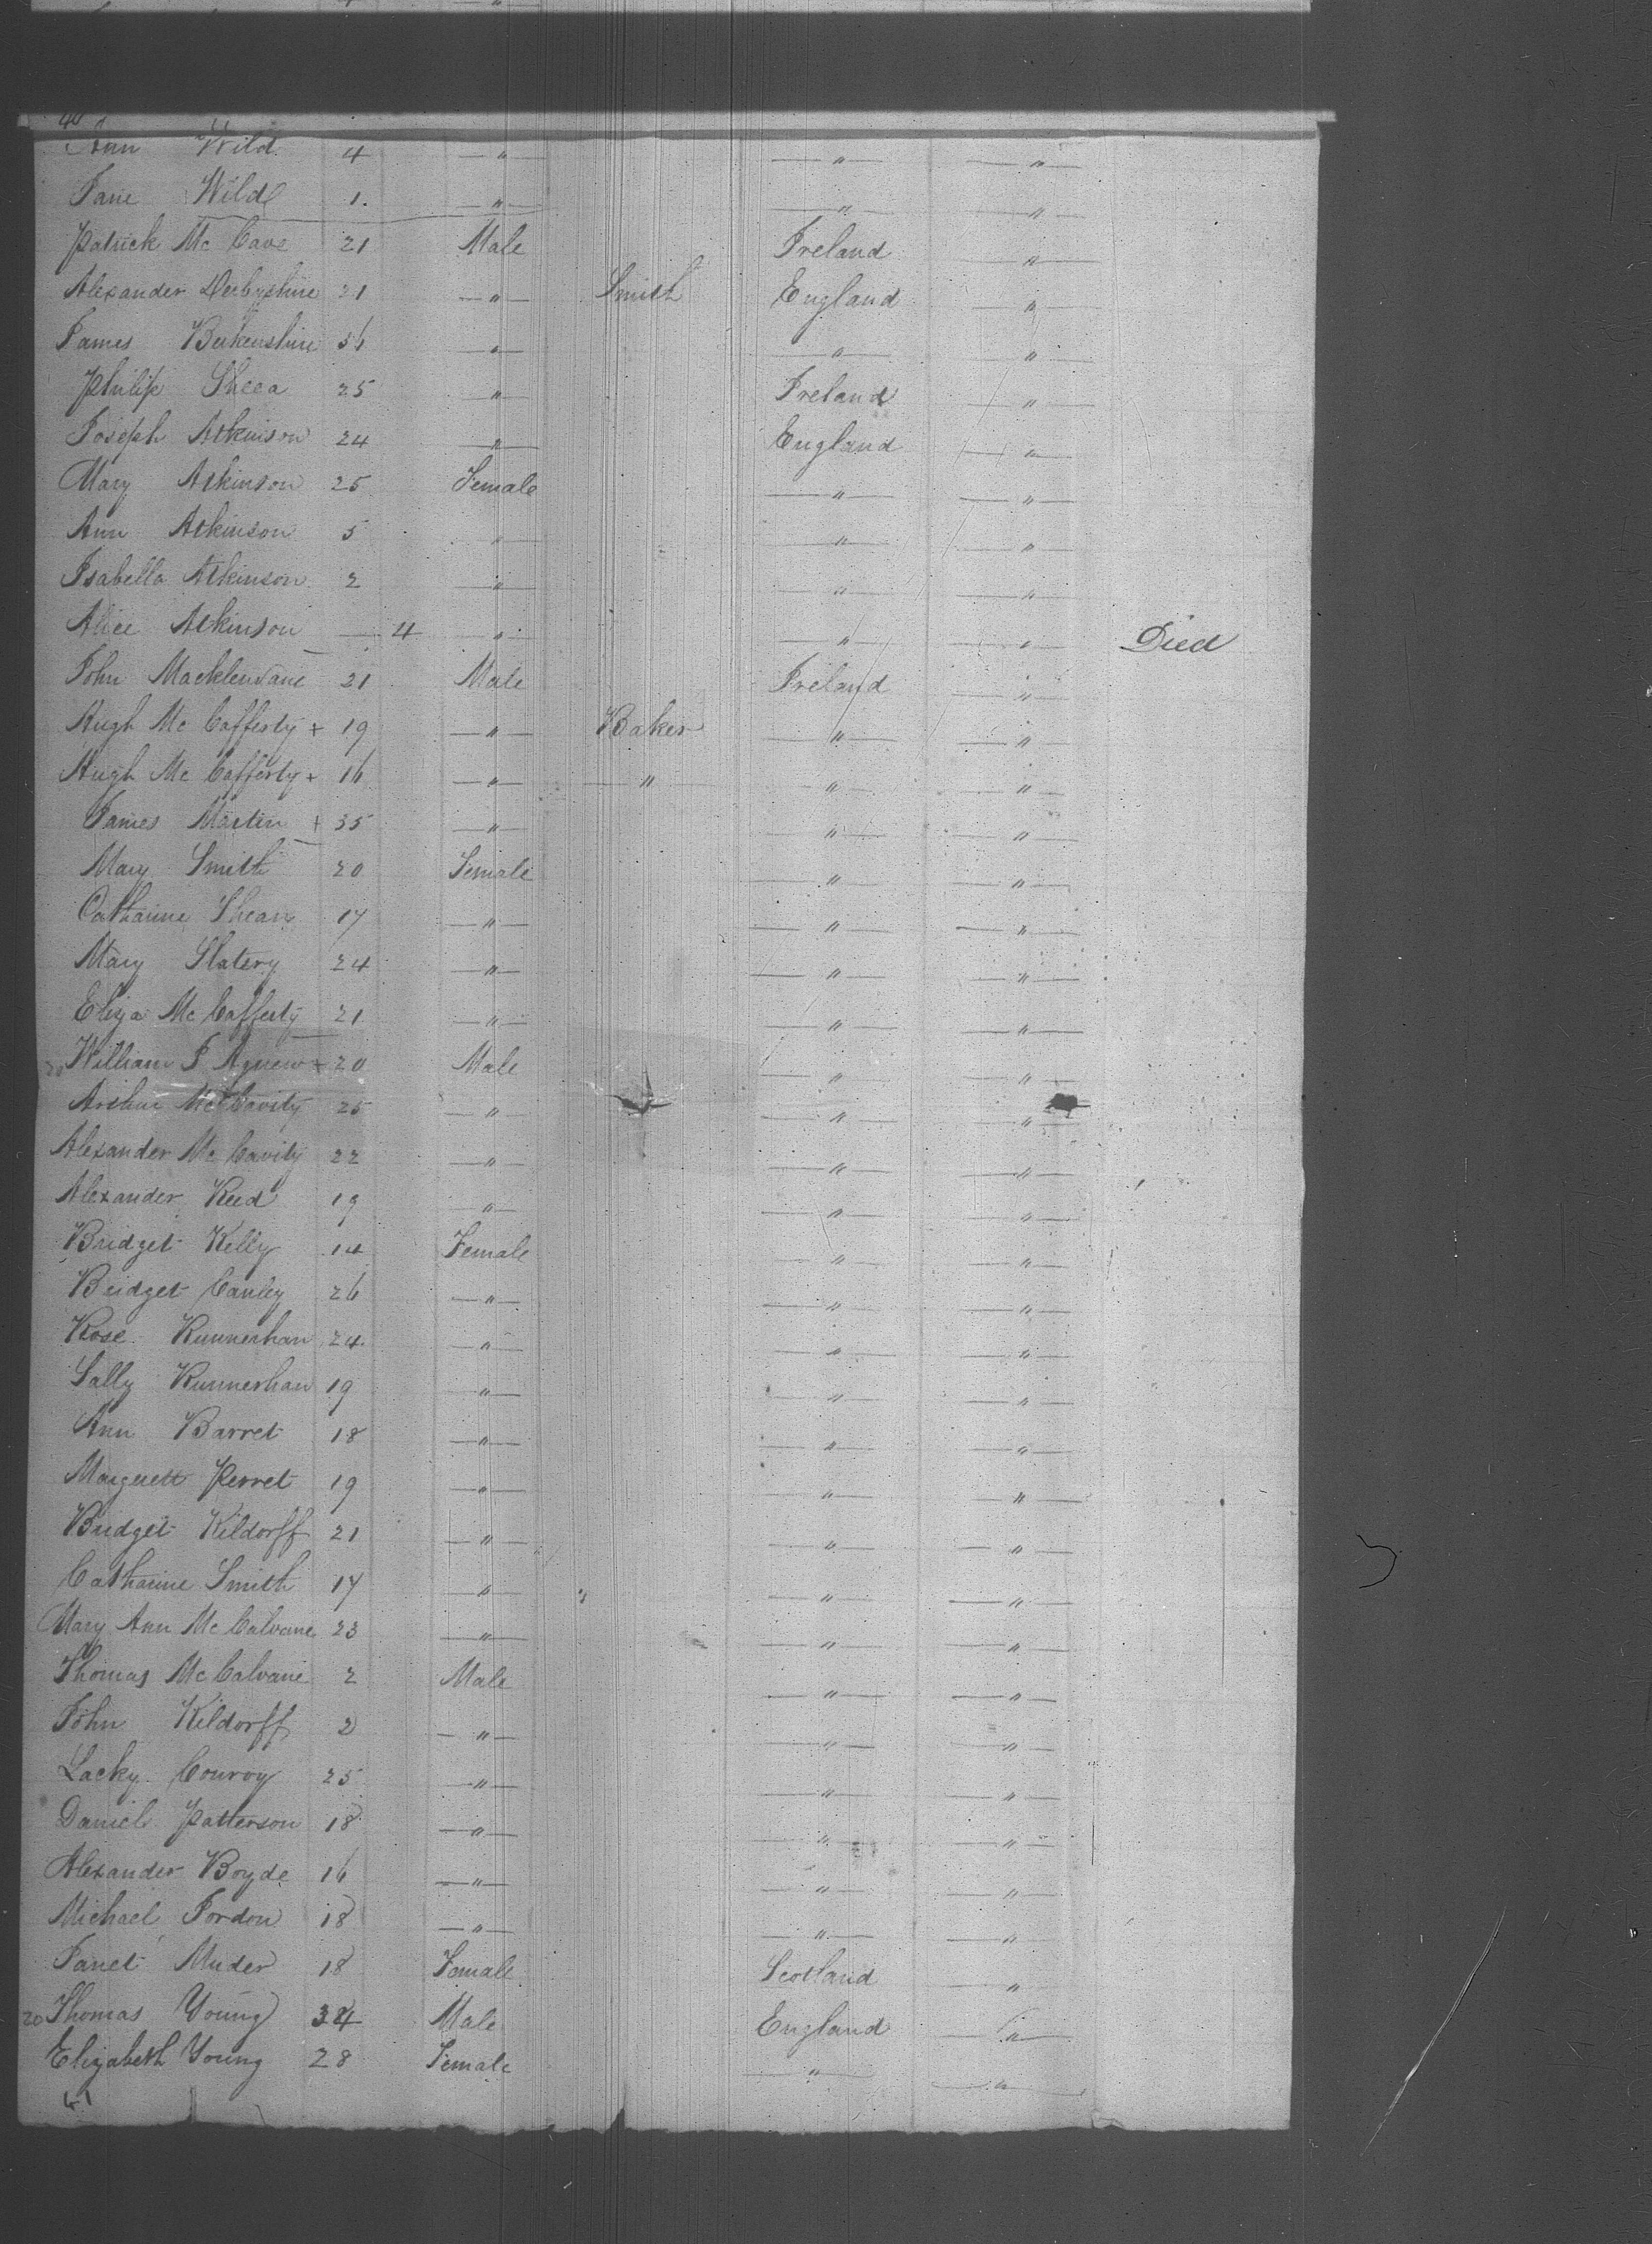 Ann Wild 4 — " — — " — — " —
Jane Wild 1 — " — — " — — " —
Patrick Mc Cave 21 Male Ireland — " —
Alexander Derbyshire 21 — " — Smith England — " —
James Berkenshire 36 — " — — " — — " —
Philip Sheea 25 — " — Ireland — " —
Joseph Atkinson 24 — " — England — " —
Mary Atkinson 25 Female — " — — " —
Ann Atkinson 5 — " — — " — — " —
Isabella Atkinson 2 — " — — " — — " —
Alice Atkinson — 4 — " — — " — — " — Died
John 21 Male Ireland — " —
Hugh Mc Cafferty + 19 — " — Baker — " — — " —
Hugh Mc Cafferty + 16 — " — — " — — " — — " —
James Martin + 35 — " — — " — — " —
Mary Smith 20 Female — " — — " —
Catharine Shean 17 — " — — " — — " —
Mary Slatery 24 — " — — " — — " —
Eliza Mc Cafferty 21 — " — — " — — " —
William J Agnew + 20 Male — " — — " —
Arthur Mc Cavity 25 — " — — " — — " —
Alexander Mc Cavity 22 — " — — " — — " —
Alexander Reed 19 — " — — " — — " —
Bridget Kelly 14 Female — " — — " —
Bridget Canley 26 — " — — " — — " —
Rose Kunnerhan 24 — " — — " — — " —
Sally Kunnerhan 19 — " — — " — — " —
Ann Barret 18 — " — — " — — " —
Margrett Perret 19 — " — — " — — " —
Bridget Kildorff 21 — " — — " — — " —
Catharine Smith 17 — " — — " — — " —
Mary Ann Mc Calvane 23 — " — — " — — " —
Thomas Mc Calvane 2 Male — " — — " —
John Kildorff 2 — " — — " — — " —
Lacky Conroy 25 — " — — " — — " —
Daniel Patterson 18 — " — — " — — " —
Alexander Boyde 16 — " — — " — — " —
Michael Jordon 18 — " — — " — — " —
Janet Muder 18 Female Scotland — " —
20 Thomas Young 34 Male England — " —
Elizabeth Young 28 Female — " — — " —
41